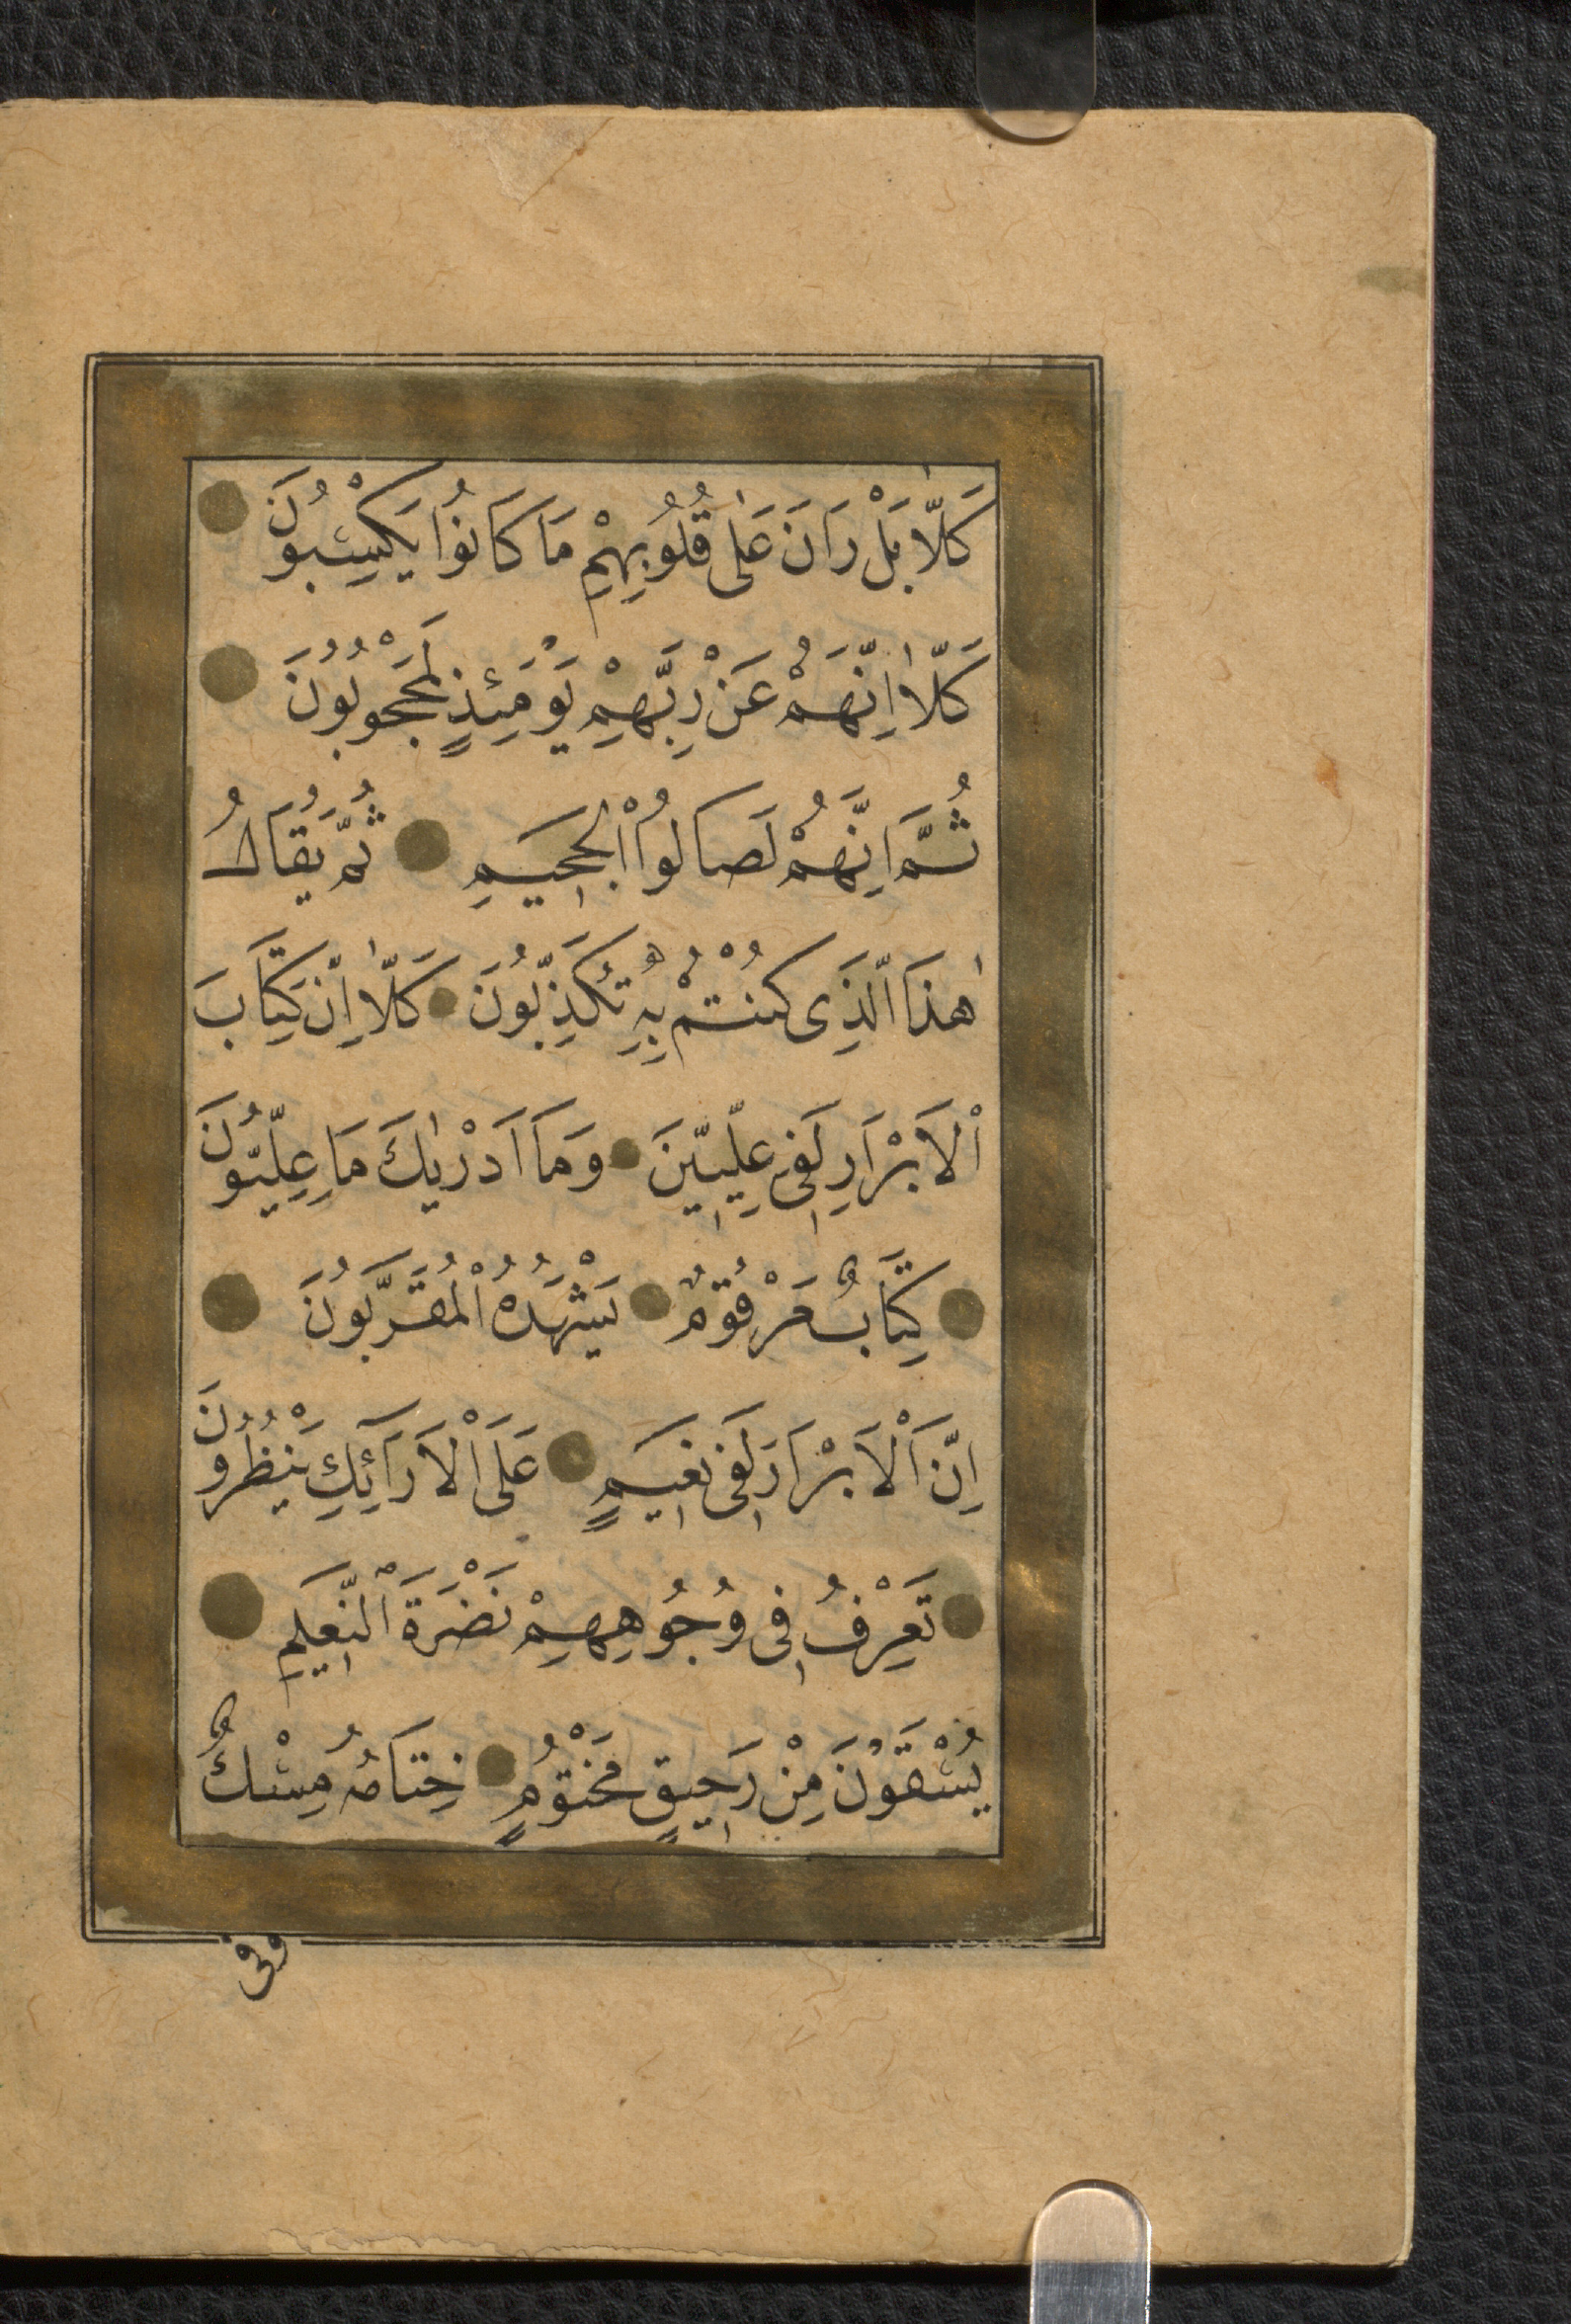 كَلَّا بَلْ رَانَ عَلٰى قُلُوبِهِمْ مَا كَانُوا يَكْسِبُونَ
كَلَّا اِنَّهُمْ عَنْ رَبِّهِمْ يَوْمَئِذٍ لَمَحْجُوبُونَ
ثُمَّ اِنَّهُمْ لَصَالُوا الْجَحِيمِ ثُمَّ يُقَالُ
هٰذَا الَّذِى كُنْتُمْ بِهِ تُكَذِّبُونَ كَلَّا اِنَّ كِتَابَ
الْاَبْرَارِ لَفِى عِلِّيِّينَ وَمَا اَدْرٰيكَ مَا عِلِّيُّونَ
كِتَابٌ مَرْقُومٌ يَشْهَدُهُ الْمُقَرَّبُونَ
اِنَّ الْاَبْرَارَ لَفِى نَعِيمٍ عَلَى الْاَرَائِكِ يَنْظُرُونَ
تَعْرِفُ فِى وُجُوهِهِمْ نَضْرَةَ النَّعِيمِ
يُسْقَوْنَ مِنْ رَحِيقٍ مَخْتُومٍ خِتَامُهُ مِسْكٌ
وفى